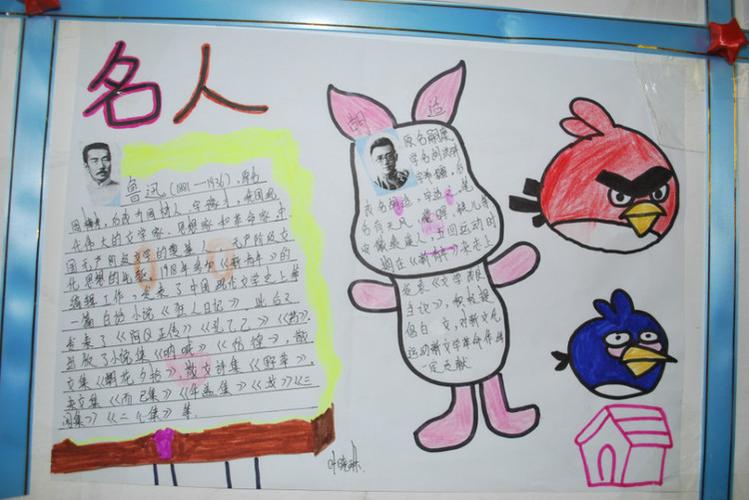 名人
鲁迅(1881—1936),原名
周,后改为周树人,字豫才,我国现
代伟大的文学家、思想家和革命家,
国无产阶级文学的奠基人,无产阶级文
化思想的先驱。1918年参加《新青年》的
编辑工作,发表了中国现代文学史上第
一篇白话小说《狂人日记》,此后又
发表了《阿Q正传》《孔乙己》《药》
出版了小说集《呐喊》《彷徨》,散
文集《朝花夕拾》,散文诗集《野草》
杂文集《而已集》《华盖集》《坟》《三
闲集》》《二心集》等
胡适
原名嗣
学名洪骍
字
改名胡适,字适之,笔
名天风、藏晖,
安徽绩溪人,五四运动时
期在《新青年》杂志上
发表《文学改良
刍议》,积极提
倡白文,对新文化
运动和文学革命作出
一定贡献